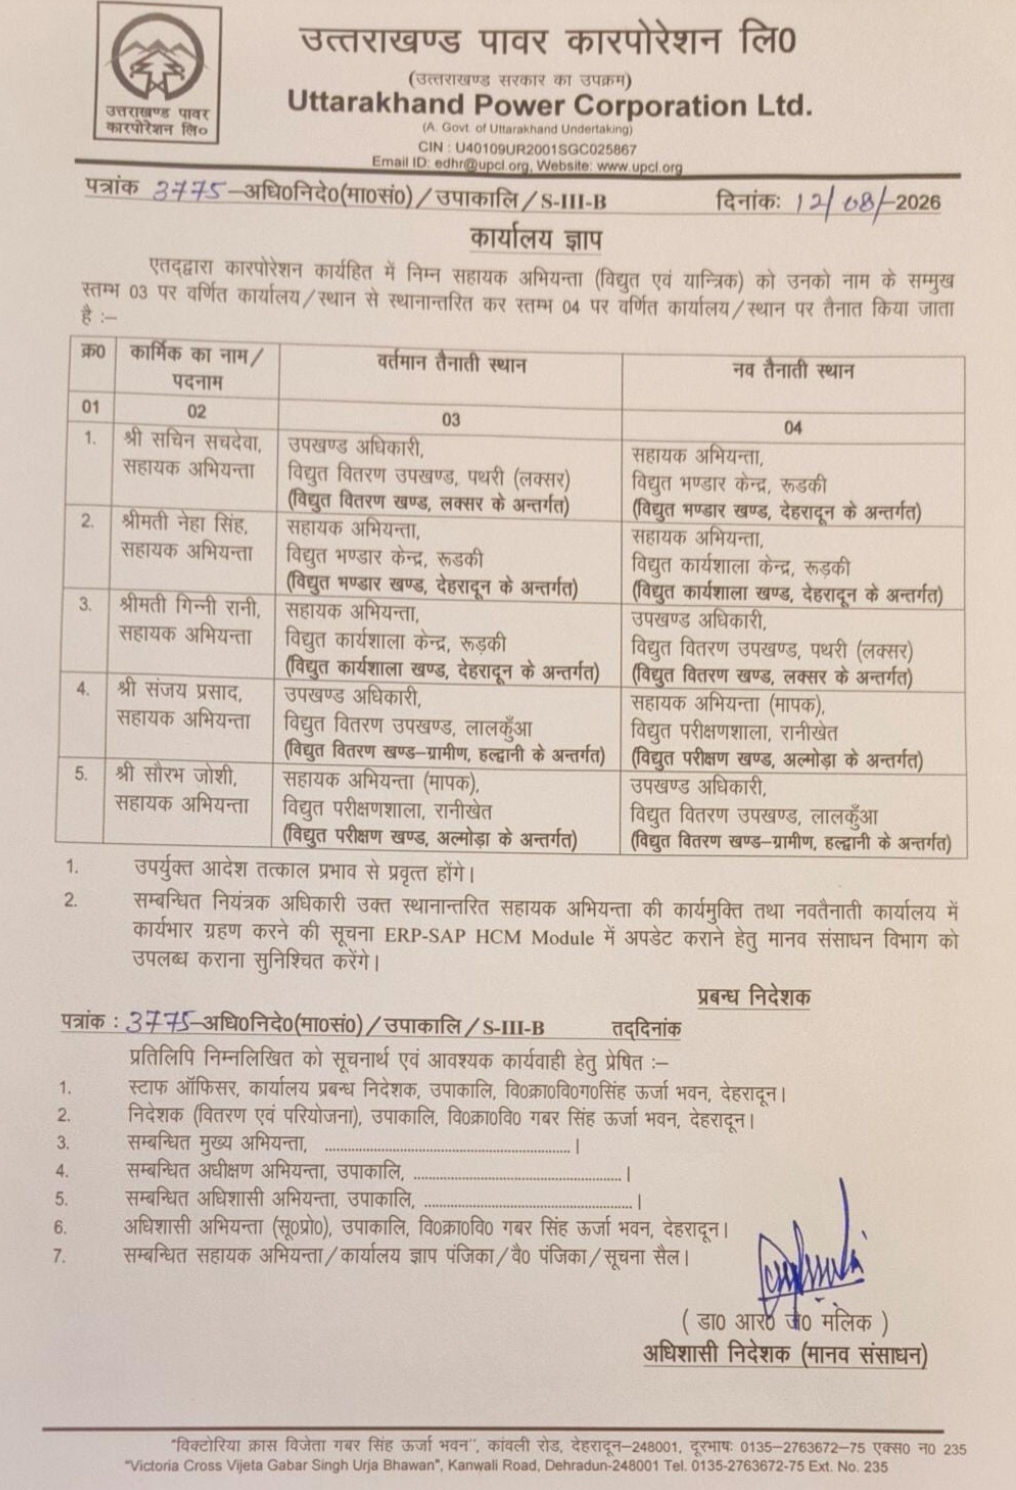 उत्तराखण्ड पावर
कारपोरेशन लि०
उत्तराखण्ड पावर कारपोरेशन लि0
(उत्तराखण्ड सरकार का उपक्रम)
Uttarakhand Power Corporation Ltd.
(A. Govt. of Uttarakhand Undertaking)
CIN : U40109UR2001SGC025867
Email ID: edhr@upcl.org, Website: www.upcl.org
पत्रांक 3775–अधि0निदे0(मा0सं0)/उपाकालि/S-III-B दिनांकः 12/08/-2026
कार्यालय ज्ञाप
एतद्द्वारा कारपोरेशन कार्यहित में निम्न सहायक अभियन्ता (विद्युत एवं यान्त्रिक) को उनको नाम के सम्मुख
स्तम्भ 03 पर वर्णित कार्यालय/स्थान से स्थानान्तरित कर स्तम्भ 04 पर वर्णित कार्यालय/स्थान पर तैनात किया जाता
है :–
क्र0 कार्मिक का नाम/ वर्तमान तैनाती स्थान नव तैनाती स्थान
पदनाम
01 02 03 04
1. श्री सचिन सचदेवा, उपखण्ड अधिकारी, सहायक अभियन्ता,
सहायक अभियन्ता विद्युत वितरण उपखण्ड, पथरी (लक्सर) विद्युत भण्डार केन्द्र, रूडकी
(विद्युत वितरण खण्ड, लक्सर के अन्तर्गत) (विद्युत भण्डार खण्ड, देहरादून के अन्तर्गत)
2. श्रीमती नेहा सिंह, सहायक अभियन्ता, सहायक अभियन्ता,
सहायक अभियन्ता विद्युत भण्डार केन्द्र, रूडकी विद्युत कार्यशाला केन्द्र, रूड़की
(विद्युत भण्डार खण्ड, देहरादून के अन्तर्गत) (विद्युत कार्यशाला खण्ड, देहरादून के अन्तर्गत)
3. श्रीमती गिन्नी रानी, सहायक अभियन्ता, उपखण्ड अधिकारी,
सहायक अभियन्ता विद्युत कार्यशाला केन्द्र, रूड़की विद्युत वितरण उपखण्ड, पथरी (लक्सर)
(विद्युत कार्यशाला खण्ड, देहरादून के अन्तर्गत) (विद्युत वितरण खण्ड, लक्सर के अन्तर्गत)
4. श्री संजय प्रसाद, उपखण्ड अधिकारी, सहायक अभियन्ता (मापक),
सहायक अभियन्ता विद्युत वितरण उपखण्ड, लालकुँआ विद्युत परीक्षणशाला, रानीखेत
(विद्युत वितरण खण्ड–ग्रामीण, हल्द्वानी के अन्तर्गत) (विद्युत परीक्षण खण्ड, अल्मोड़ा के अन्तर्गत)
5. श्री सौरभ जोशी, सहायक अभियन्ता (मापक), उपखण्ड अधिकारी,
सहायक अभियन्ता विद्युत परीक्षणशाला, रानीखेत विद्युत वितरण उपखण्ड, लालकुँआ
(विद्युत परीक्षण खण्ड, अल्मोड़ा के अन्तर्गत) (विद्युत वितरण खण्ड–ग्रामीण, हल्द्वानी के अन्तर्गत)
1. उपर्युक्त आदेश तत्काल प्रभाव से प्रवृत्त होंगे।
2. सम्बन्धित नियंत्रक अधिकारी उक्त स्थानान्तरित सहायक अभियन्ता की कार्यमुक्ति तथा नवतैनाती कार्यालय में
कार्यभार ग्रहण करने की सूचना ERP-SAP HCM Module में अपडेट कराने हेतु मानव संसाधन विभाग को
उपलब्ध कराना सुनिश्चित करेंगे।
प्रबन्ध निदेशक
पत्रांक : 3775–अधि0निदे0(मा0सं0)/उपाकालि/S-III-B तद्दिनांक
प्रतिलिपि निम्नलिखित को सूचनार्थ एवं आवश्यक कार्यवाही हेतु प्रेषित :–
1. स्टाफ ऑफिसर, कार्यालय प्रबन्ध निदेशक, उपाकालि, वि0क्रा0वि0ग0सिंह ऊर्जा भवन, देहरादून।
2. निदेशक (वितरण एवं परियोजना), उपाकालि, वि0क्रा0वि0 गबर सिंह ऊर्जा भवन, देहरादून।
3. सम्बन्धित मुख्य अभियन्ता, ..........................................।
4. सम्बन्धित अधीक्षण अभियन्ता, उपाकालि, ....................................।
5. सम्बन्धित अधिशासी अभियन्ता, उपाकालि, ....................................।
6. अधिशासी अभियन्ता (सू0प्रो0), उपाकालि, वि0क्रा0वि0 गबर सिंह ऊर्जा भवन, देहरादून।
7. सम्बन्धित सहायक अभियन्ता/कार्यालय ज्ञाप पंजिका/वै0 पंजिका/सूचना सैल।
( डा0 आर0 जे0 मलिक )
अधिशासी निदेशक (मानव संसाधन)
"विक्टोरिया क्रास विजेता गबर सिंह ऊर्जा भवन", कांवली रोड, देहरादून–248001, दूरभाषः 0135–2763672–75 एक्स0 न0 235
"Victoria Cross Vijeta Gabar Singh Urja Bhawan", Kanwali Road, Dehradun-248001 Tel. 0135-2763672-75 Ext. No. 235